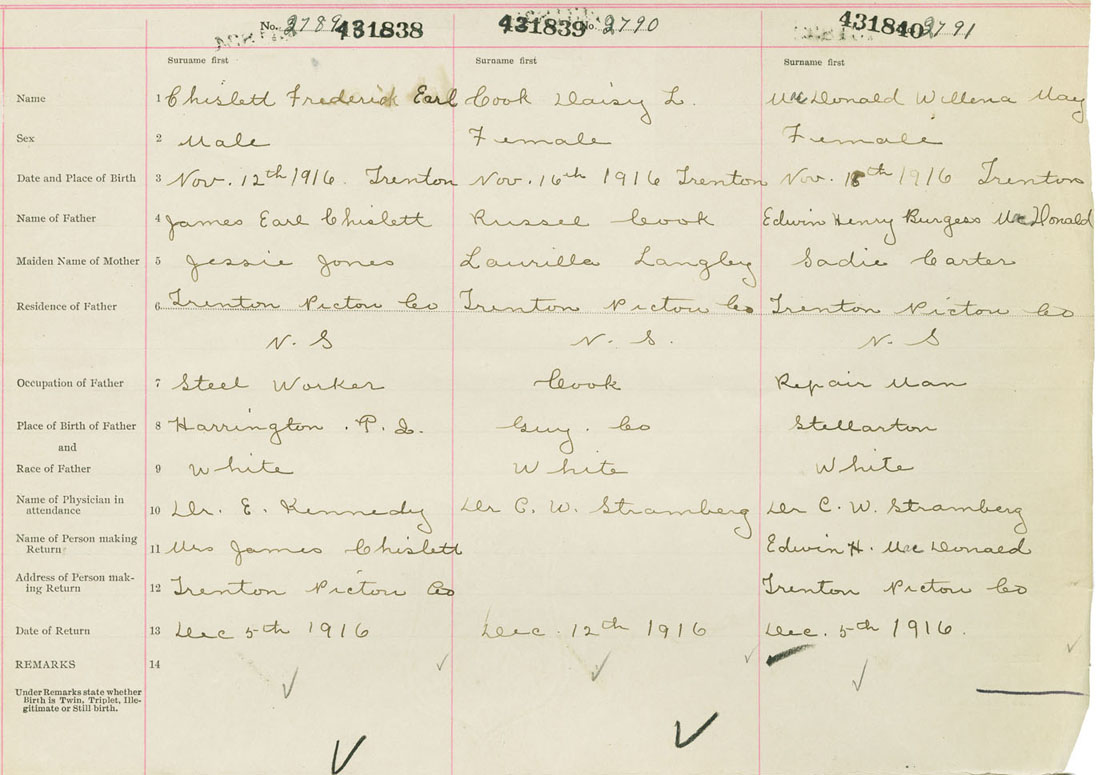 No. 2789 431838 431839 No. 2790 431840 2791
Surname first Surname first Surname first
Name 1 Chislett Frederick Earl Cook Daisy L. McDonald Willena May
Sex 2 Male Female Female
Date and Place of Birth 3 Nov. 12th 1916. Trenton Nov. 16th 1916 Trenton Nov. 18th 1916 Trenton
Name of Father 4 James Earl Chislett Russel Cook Edwin Henry Burgess McDonald
Maiden Name of Mother 5 Jessie Jones Laurilla Langley Sadie Carter
Residence of Father 6 Trenton Pictou Co Trenton Pictou Co Trenton Pictou Co
N. S N. S. N. S
Occupation of Father 7 Steel Worker Cook Repair Man
Place of Birth of Father 8 Harrington . P. I. Guy. Co Stellarton
and
Race of Father 9 White White White
Name of Physician in
attendance 10 Dr. E. Kennedy Dr C. W. Stramberg Dr C. W. Stramberg
Name of Person making
Return 11 Mrs James Chislett Edwin H. McDonald
Address of Person mak-
ing Return 12 Trenton Pictou Co Trenton Pictou Co
Date of Return 13 Dec 5th 1916 Dec. 12th 1916 Dec. 5th 1916.
REMARKS 14
Under Remarks state whether
Birth is Twin, Triplet, Ille-
gitimate or Still birth.